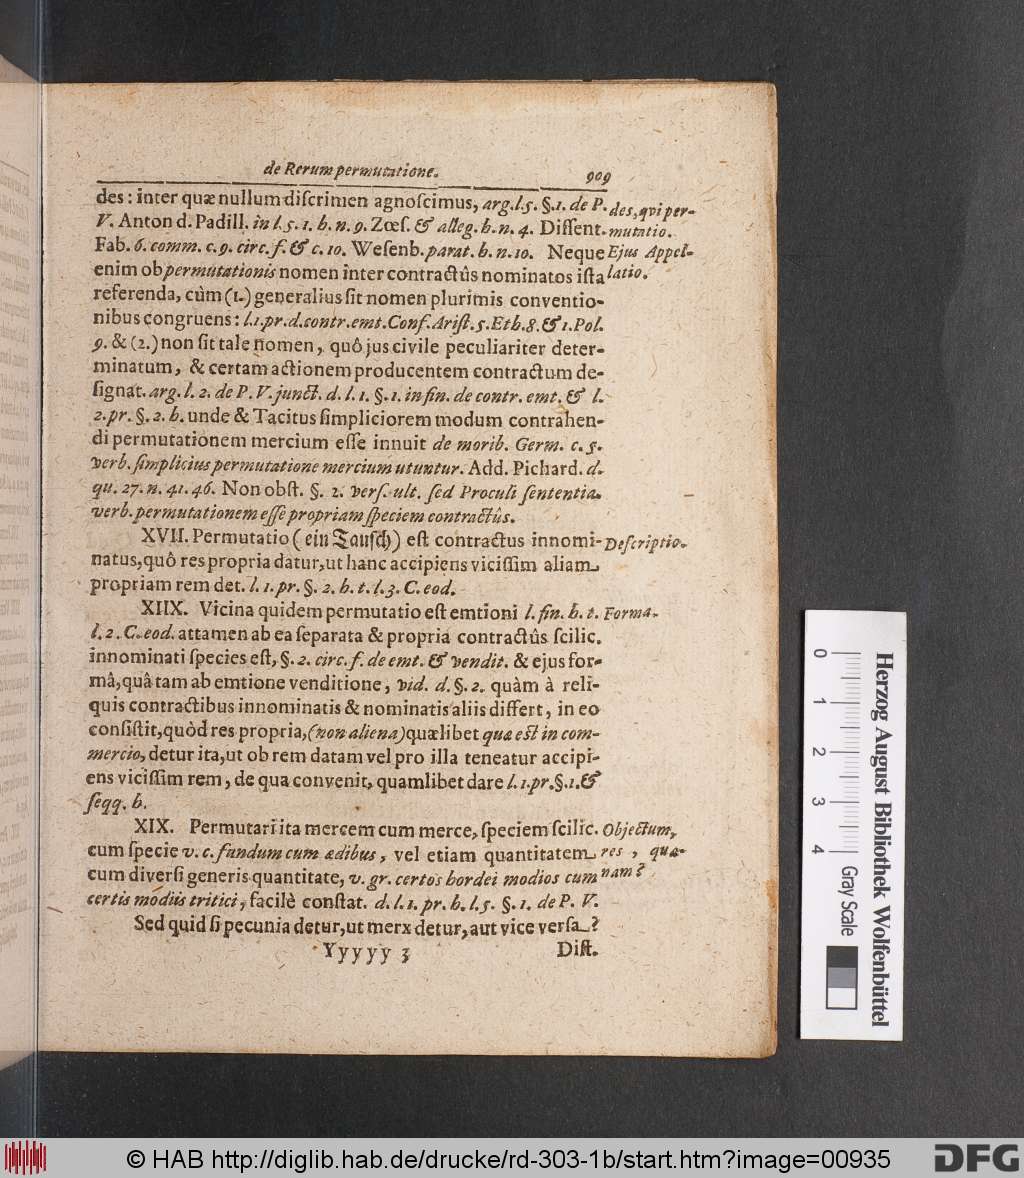 de Rerum permutatione. 909
des: inter quæ nullum diſcrimen agnoſcimus, arg. l. 5. §. 1. de P.
V. Anton d. Padill. in l. 5. 1. h. n. 9. Zœſ. & alleg. h. n. 4. Diſſent.
Fab. 6. comm. c. 9. circ. f. & c. 10. Weſenb. parat. h. n. 10. Neque
enim ob permutationis nomen inter contractûs nominatos iſta
referenda, cùm (1.) generalius ſit nomen plurimis conventio-
nibus congruens: l. 1. pr. d. contr. emt. Conf. Ariſt. 5. Eth. 8. & 1. Pol.
9. & (2.) non ſit tale nomen, quô jus civile peculiariter deter-
minatum, & certam actionem producentem contractum de-
ſignat. arg. l. 2. de P. V. junct. d. l. 1. §. 1. in fin. de contr. emt. & l.
2. pr. §. 2. h. unde & Tacitus ſimpliciorem modum contrahen-
di permutationem mercium eſſe innuit de morib. Germ. c. 5.
verb. ſimplicius permutatione mercium utuntur. Add. Pichard. d.
qu. 27. n. 41. 46. Non obſt. §. 2. verſ. ult. ſed Proculi ſententia.
verb. permutationem eſſe propriam ſpeciem contractûs.
XVII. Permutatio (ein Tauſch) eſt contractus innomi-
natus, quô res propria datur, ut hanc accipiens viciſſim aliam
propriam rem det. l. 1. pr. §. 2. h. t. l. 3. C. eod.
XIIX. Vicina quidem permutatio eſt emtioni l. fin. h. t.
l. 2. C. eod. attamen ab ea ſeparata & propria contractûs ſcilic.
innominati ſpecies eſt, §. 2. circ. f. de emt. & vendit. & ejus for-
mâ, quâ tam ab emtione venditione, vid. d. §. 2. quàm à reli-
quis contractibus innominatis & nominatis aliis differt, in eo
conſiſtit, quòd res propria, (non aliena) quælibet quæ eſt in com-
mercio, detur ita, ut ob rem datam vel pro illa teneatur accipi-
ens viciſſim rem, de qua convenit, quamlibet dare l. 1. pr. §. 1. &
ſeqq. h.
XIX. Permutari ita mercem cum merce, ſpeciem ſcilic.
cum ſpecie v. c. fundum cum ædibus, vel etiam quantitatem
cum diverſi generis quantitate, v. gr. certos hordei modios cum
certis modiis tritici, facilè conſtat. d. l. 1. pr. h. l. 5. §. 1. de P. V.
Sed quid ſi pecunia detur, ut merx detur, aut vice verſa?
Yyyyy 3 Diſt.
des, qvi per-
mutatio.
Ejus Appel-
latio.
Deſcriptio.
Forma.
Objectum,
res, quæ-
nam?
0 1 2 3 4
Gray Scale
Herzog August Bibliothek Wolfenbüttel
© HAB http://diglib.hab.de/drucke/rd-303-1b/start.htm?image=00935
DFG